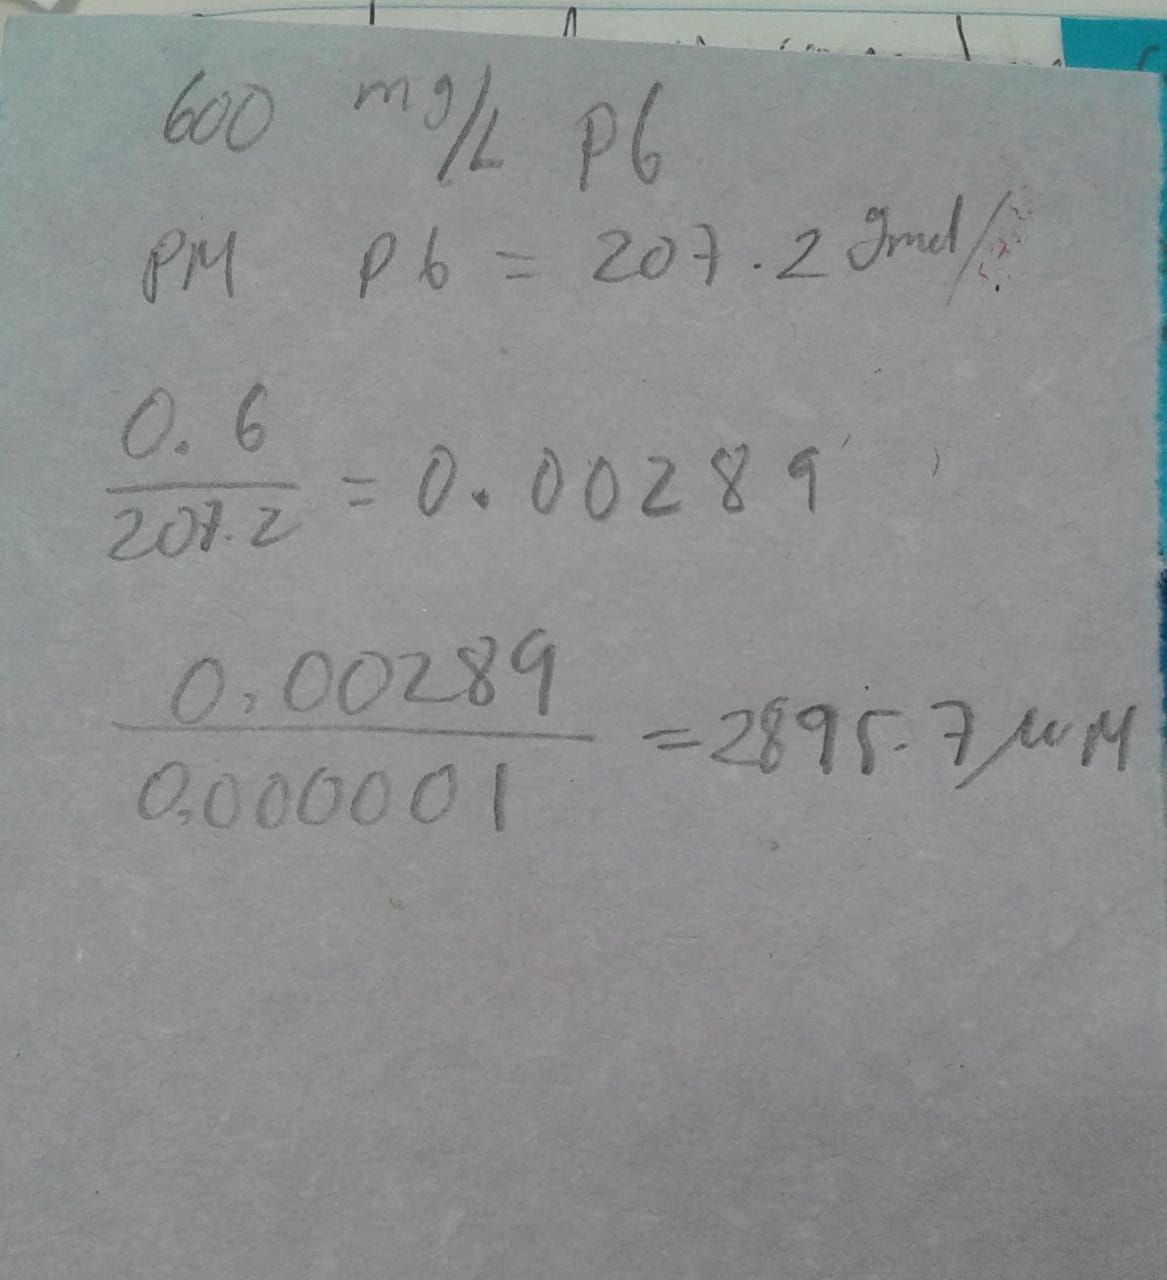 600 mg/L Pb
PM Pb = 207.2 gmol/
0.6
207.2
= 0.00289
0.00289
0.000001
= 2895.7 μM